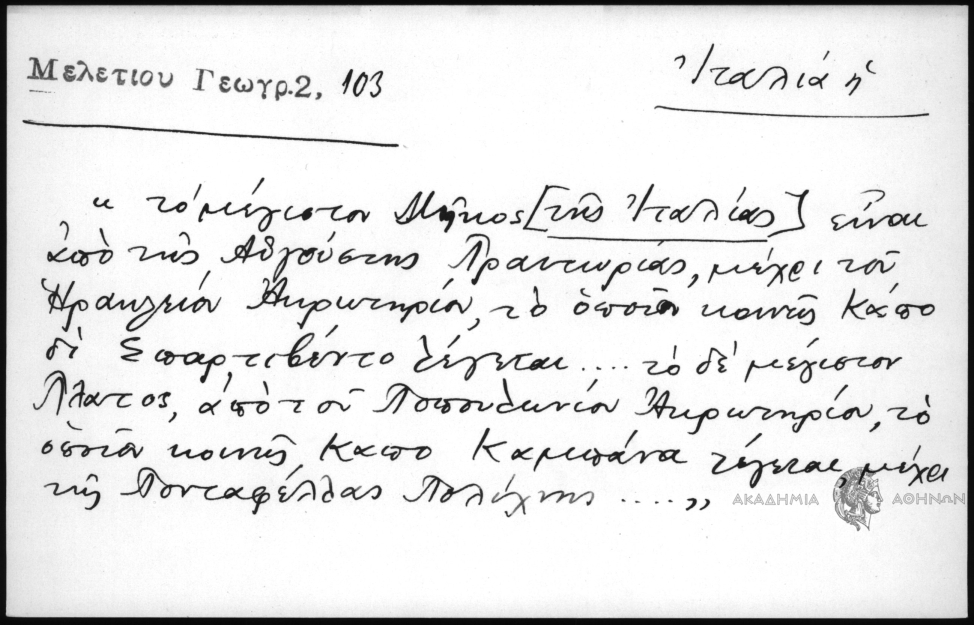 Μελετιου Γεωγρ.2, 103
Ἰταλιά ἡ
« τὸ μέγιστον Μῆκος [τῆς Ἰταλίας] εἶναι
ἀπὸ τῆς Αὐγούστης Πραιτωρίας, μέχρι τοῦ
Ἡρακλείου Ἀκρωτηρίου, τὸ ὁποῖον κοινῶς Κάπο
δὶ Σπαρτιβέντο λέγεται .... τὸ δέ μέγιστον
Πλάτος, ἀπὸ τοῦ Ποπουλωνίου Ἀκρωτηρίου, τὸ
ὁποῖον κοινῶς Κάπο Καμπάνα λέγεται, μέχρι
τῆς Πονταφέλλας Πολίχνης ..... »
ΑΚΑΔΗΜΙΑ ΑΘΗΝΩΝ